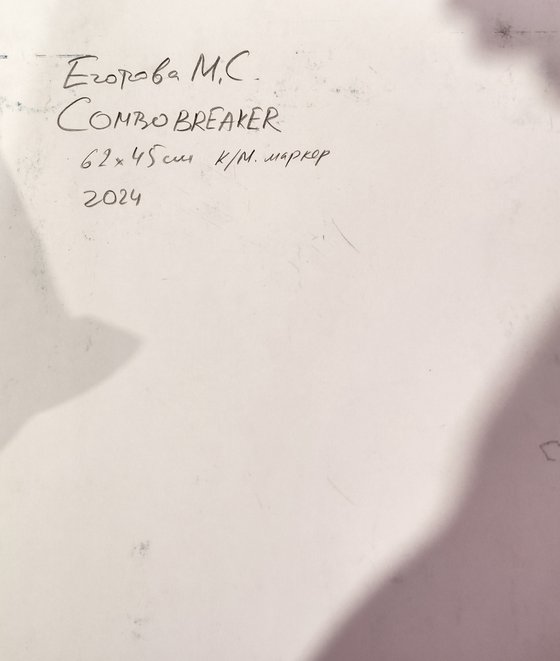 Егорова М.С.
COMBOBREAKER
62x45см к/м. маркер
2024